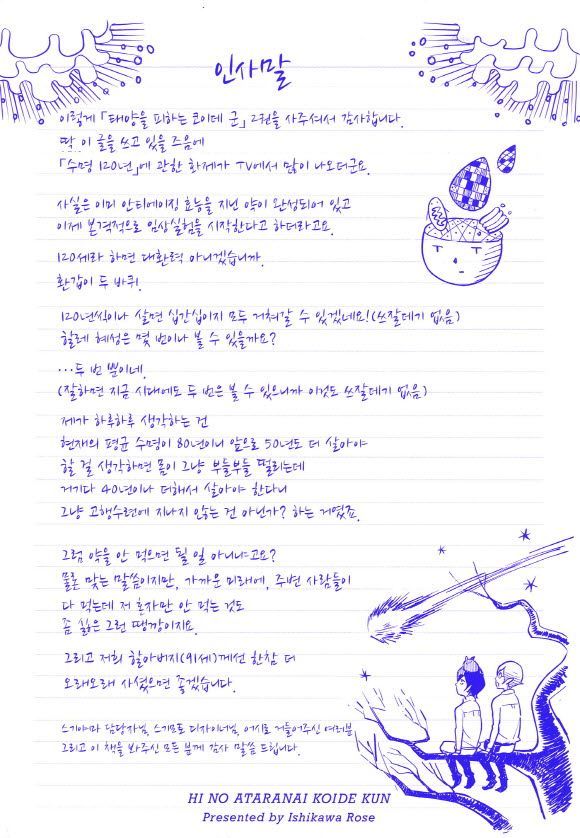 인사말
이렇게 「태양을 피하는 코이데 군」 2권을 사주셔서 감사합니다.
딱 이 글을 쓰고 있을 즈음에
「수명 120년」에 관한 화제가 TV에서 많이 나오더군요.
사실은 이미 안티에이징 효능을 지닌 약이 완성되어 있고
이제 본격적으로 임상실험을 시작한다고 하더라고요.
120세라 하면 대환력 아니겠습니까.
환갑이 두 바퀴.
120년씩이나 살면 십간십이지 모두 거쳐갈 수 있겠네요!(쓰잘데기 없음)
할레 혜성은 몇 번이나 볼 수 있을까요?
…두 번 뿐이네.
(잘하면 지금 시대에도 두 번은 볼 수 있으니까 이것도 쓰잘데기 없음)
제가 하루하루 생각하는 건
현재의 평균 수명이 80년이니 앞으로 50년도 더 살아야
할 걸 생각하면 몸이 그냥 부들부들 떨리는데
거기다 40년이나 더해서 살아야 한다니
그냥 고행수련에 지나지 않는 건 아닌가? 하는 거였죠.
그럼 약을 안 먹으면 될 일 아니냐고요?
물론 맞는 말씀이지만, 가까운 미래에, 주변 사람들이
다 먹는데 저 혼자만 안 먹는 것도
좀 싫은 그런 땡깡이지요.
그리고 저희 할아버지(91세)께선 한참 더
오래오래 사셨으면 좋겠습니다.
스기야마 담당자님, 스기모토 디자이너님, 어시로 거들어주신 여러분
그리고 이 책을 봐주신 모든 분께 감사 말씀 드립니다.
HI NO ATARANAI KOIDE KUN
Presented by Ishikawa Rose